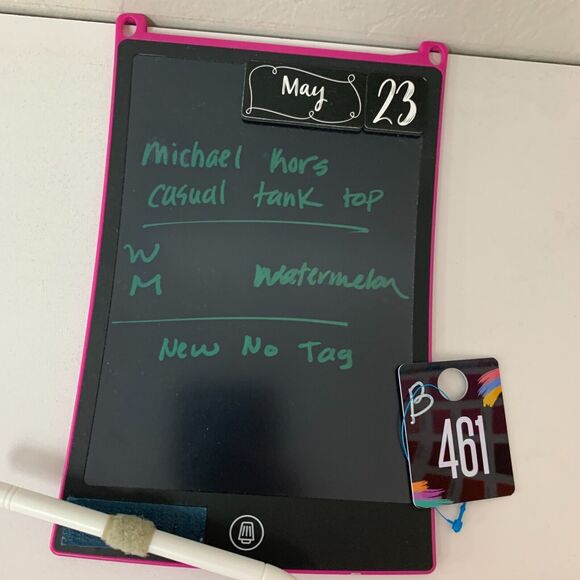 May 23
Michael Kors
casual tank top
W
M watermelon
New No Tag
B
461